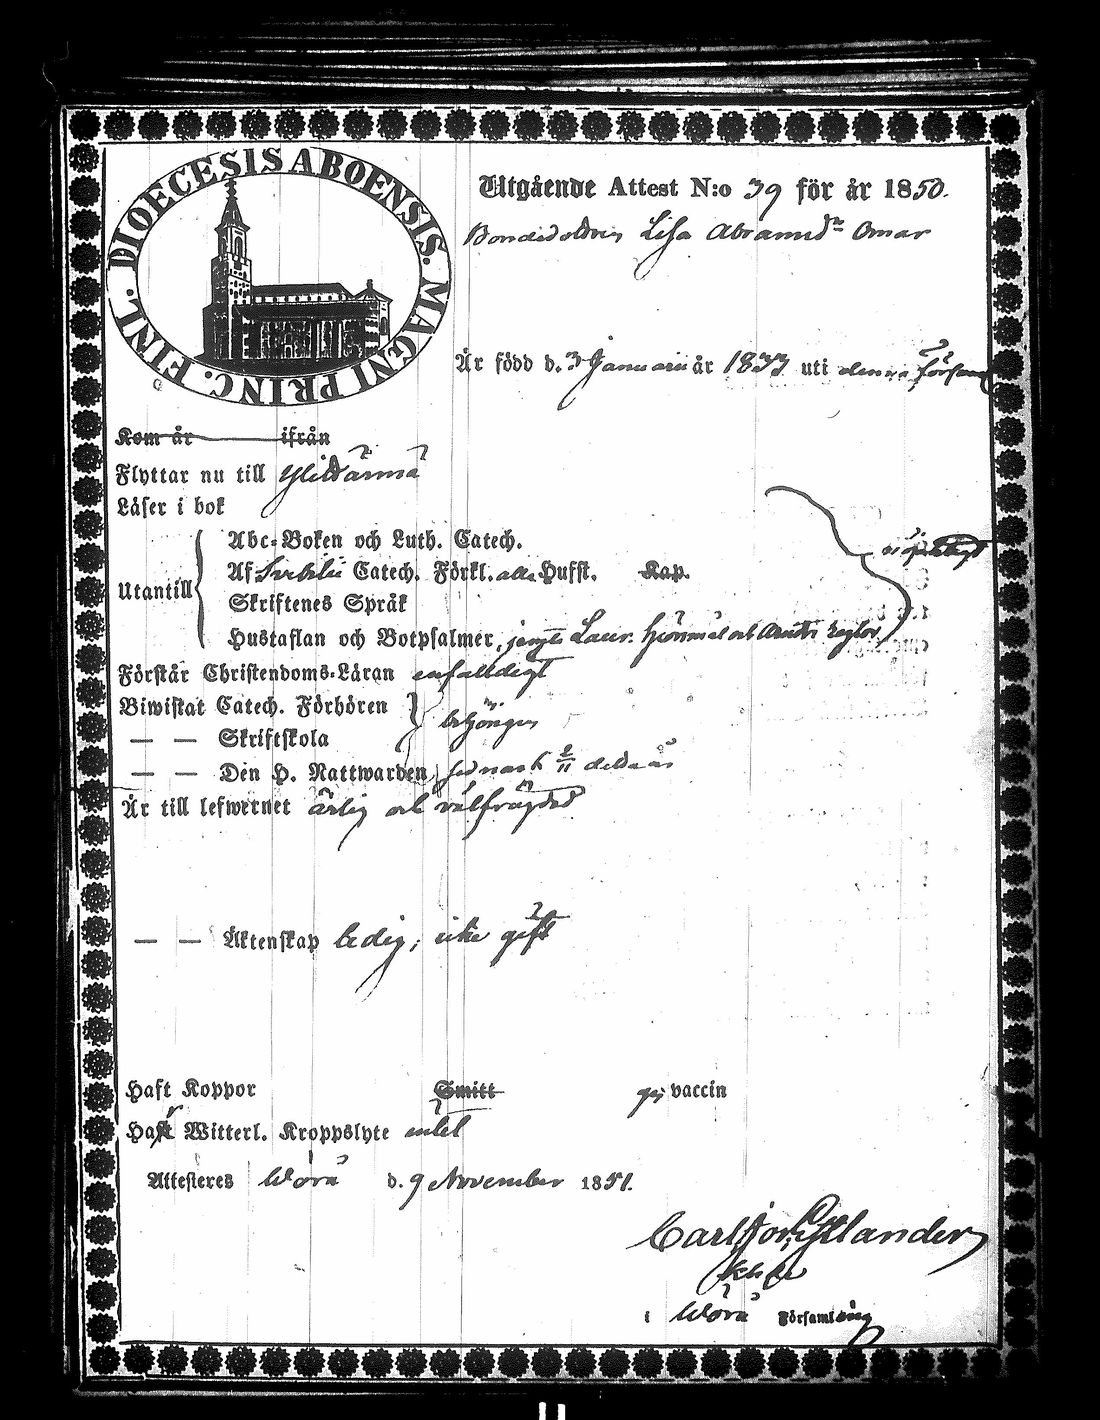 DIOECESIS ABOENSIS. MAGNI PRINC. FINL.
Utgående Attest N:o 39 för år 1850.
Lisa Abramsdr Omar
Är född d. 3 Januarii år 1833 uti denna Försam
Kom år ifrån
Flyttar nu till Ylihärmä
Läser i bok
Abc-Boken och Luth. Catech.
Utantill
Af Svebilii Catech. Förkl. alla Hufst. Kap.
Skriftenes Språk
Hustaflan och Botpsalmer, jemte Laur. och
Förstår Christendoms-Läran enfalldigt
Biwistat Catech. Förhören
— — Skriftskola
— — Den H. Nattwarden, sednast 2/11 detta år
Är till lefwernet ärlig och välfrägdad
— — Äktenskap ledig, icke gift
Haft Koppor Smitt vaccin
Haft Witterl. Kroppslyte intet
Attesteres Wörå d. 9 November 1851.
Carl
i Wörå Församling